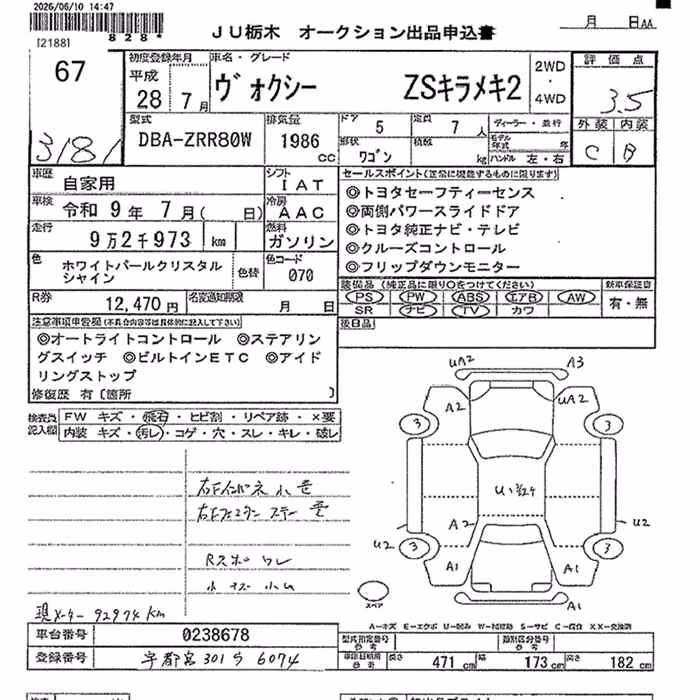 2026/06/10 14:47
[2188] 828*
JU栃木 オークション出品申込書
月 日AA
67
3181
初度登録年月
平成
28 7月
車名・グレード
ヴォクシー ZSキラメキ2
2WD
・
4WD
評価点
3.5
外装 内装
C B
型式
DBA-ZRR80W
排気量
1986 cc
ドア 5
定員 7 人
形状 ワゴン
積載 kg
ディーラー・並行
モデル年式 年
ハンドル 左・右
車歴 自家用
シフト IAT
車検 令和 9年 7月( 日)
冷房 AAC
走行 9万2千973 km
燃料 ガソリン
色 ホワイトパールクリスタル
シャイン
色替
色コード 070
R券 12,470円
名変通知期限 月 日
セールスポイント(正常に機能するものに限ります)
◎トヨタセーフティーセンス
◎両側パワースライドドア
◎トヨタ純正ナビ・テレビ
◎クルーズコントロール
◎フリップダウンモニター
装備品(純正品に限り○をつけてください)
PS PW ABS エアB AW
SR ナビ TV カワ
新車保証書
有・無
後日品
注意事項申告欄(不具合内容等は具体的に記入して下さい)
◎オートライトコントロール ◎ステアリン
グスイッチ ◎ビルトインETC ◎アイド
リングストップ
修復歴 有〔箇所 〕
検査員
記入欄
FW キズ・飛石・ヒビ割・リペア跡・×要
内装 キズ・汚レ・コゲ・穴・スレ・キレ・破レ
右Fインパネ小キズ
Rスポワレ
小キズ小凹
現メーター 92974km
UA2 A3
A2 UA2
3 3
U・
A2
U2 U2
3 3
A1 A1
A1
スペア
A=キズ E=エクボ U=凹み W=補修跡 S=サビ C=腐食 XX=交換済
車台番号 0238678
登録番号 宇都宮 301 ら 6074
型式指定番号
参考
類別区分番号
参考
車両寸法
参考
長さ 471 cm 幅 173 cm 高さ 182 cm